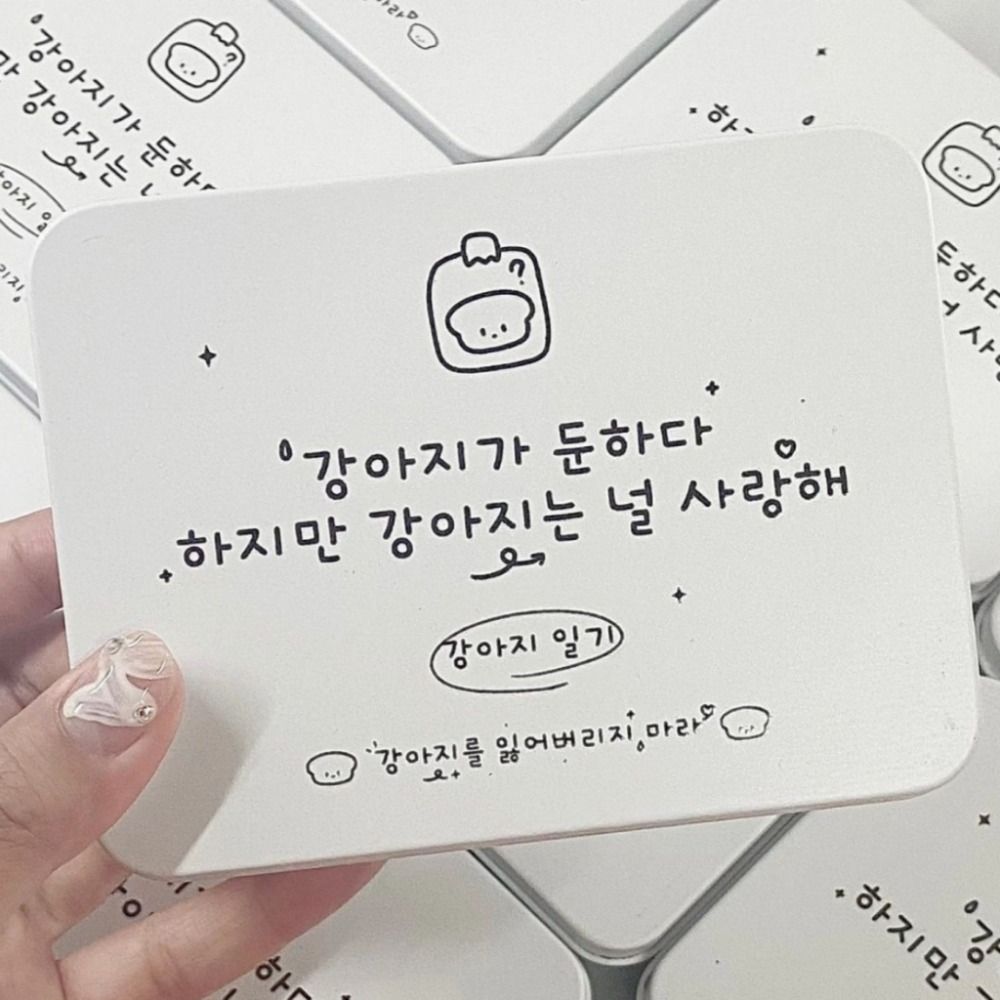 ?
강아지가 둔하다
하지만 강아지는 널 사랑해
강아지 일기
강아지를 잃어버리지 마라
강아지가 둔하
강아지는
하지만